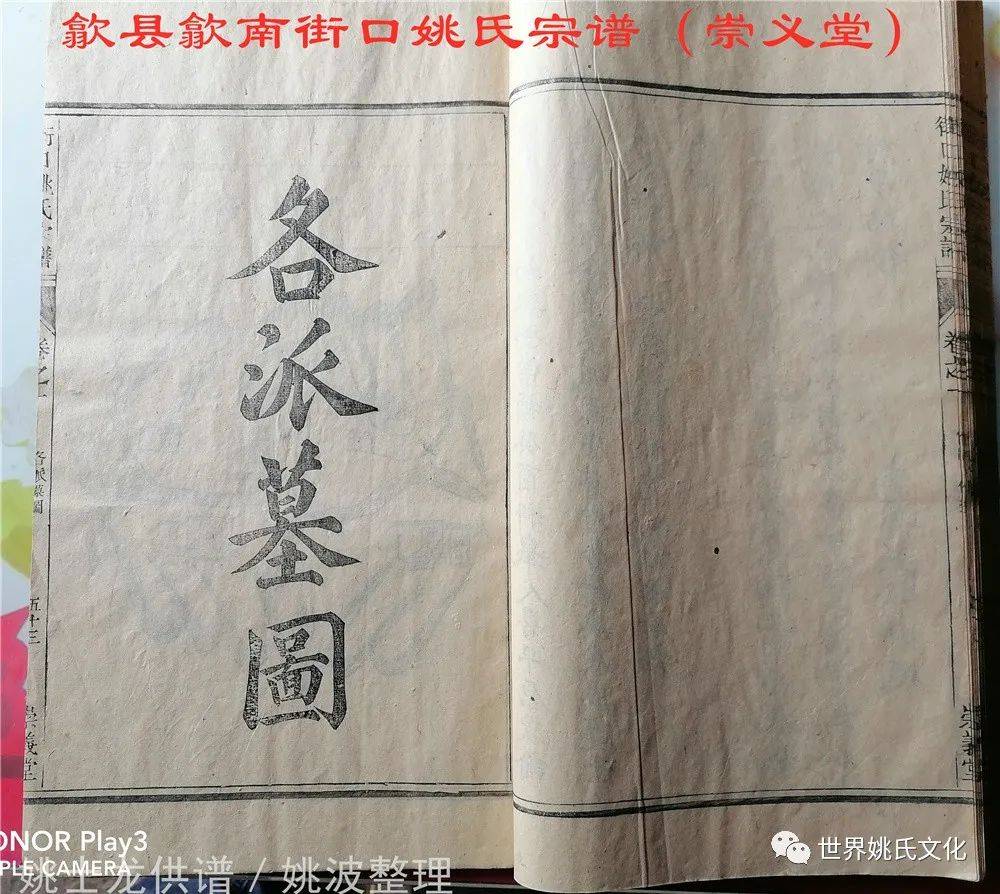 歙县歙南街口姚氏宗谱（崇义堂）
各派墓圖
街口姚氏宗譜
卷之一
各派墓圖
五十三
崇義堂
街口姚氏宗譜
卷之一
崇義堂
ONOR Play3
PLE CAMERA
姚士龙供谱 / 姚波整理
世界姚氏文化